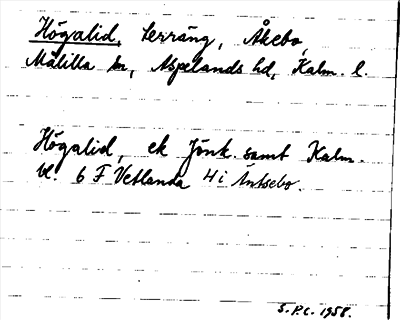 Högalid, terräng, Åkebo,
Målilla sn, Aspelands hd, Kalm. l.
Högalid, ek Jönk. samt Kalm.
bl. 6 F Vetlanda 4 i Äntsebo.
S.P.C. 1958.